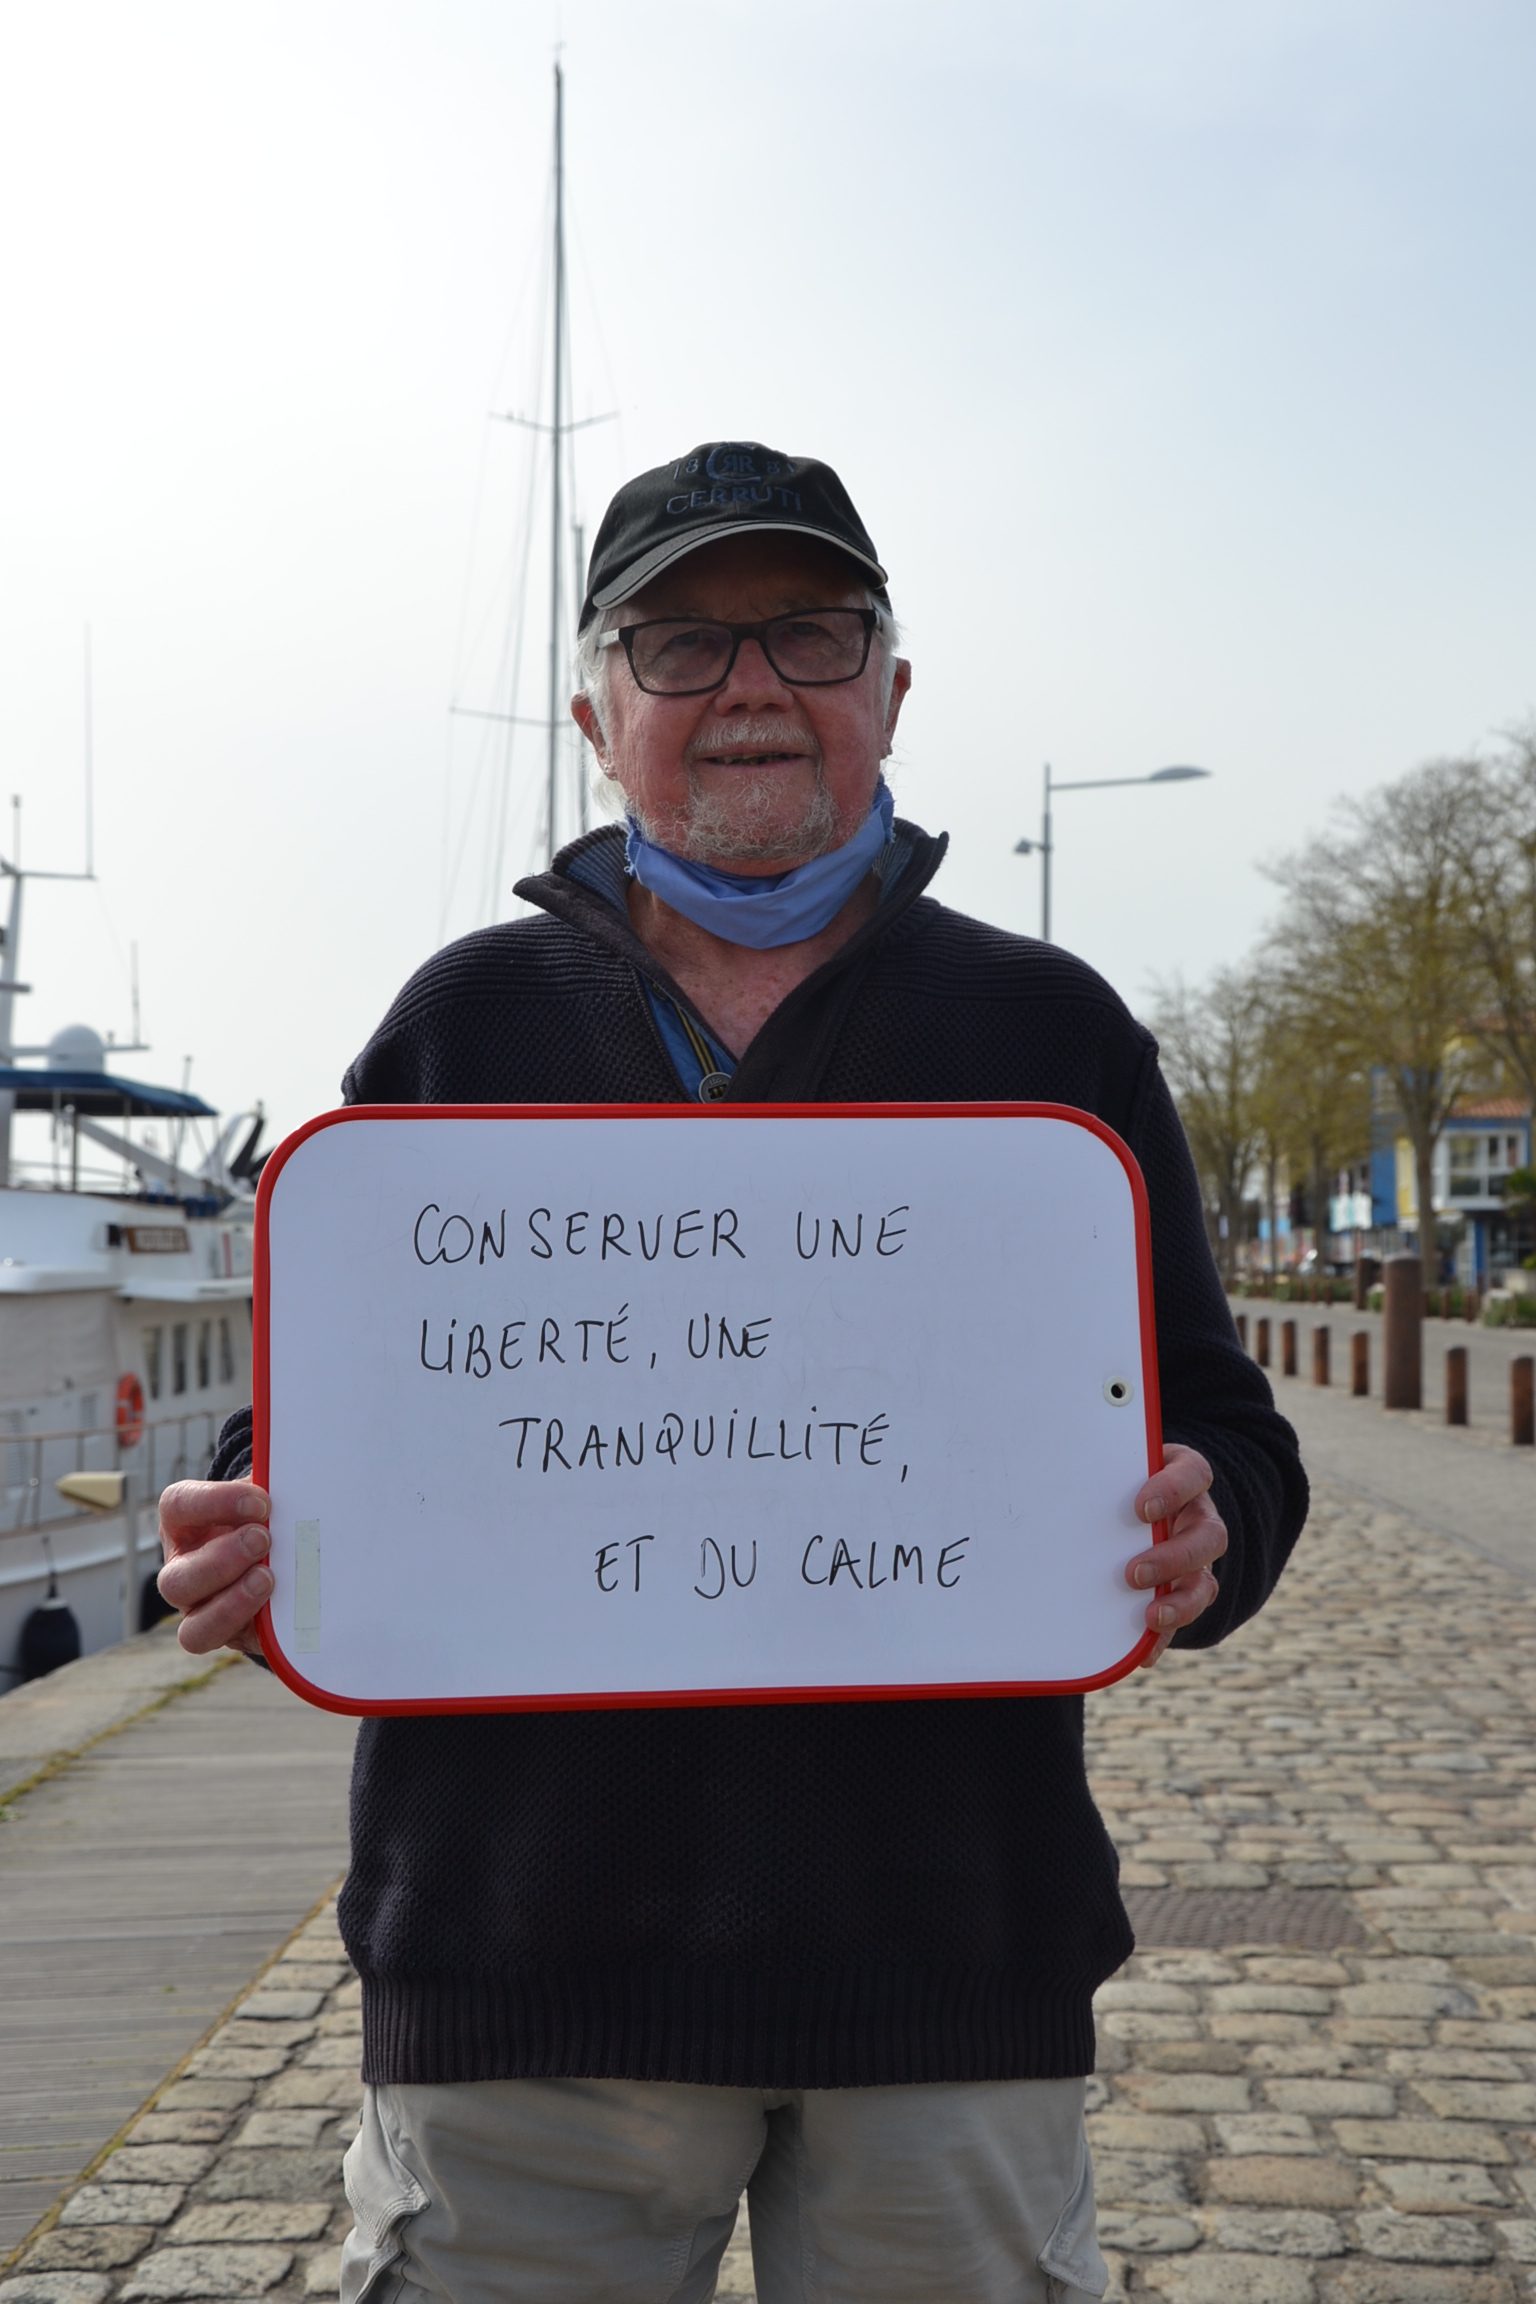 CERRUTI
CONSERVER UNE
LIBERTÉ, UNE
TRANQUILLITÉ,
ET DU CALME